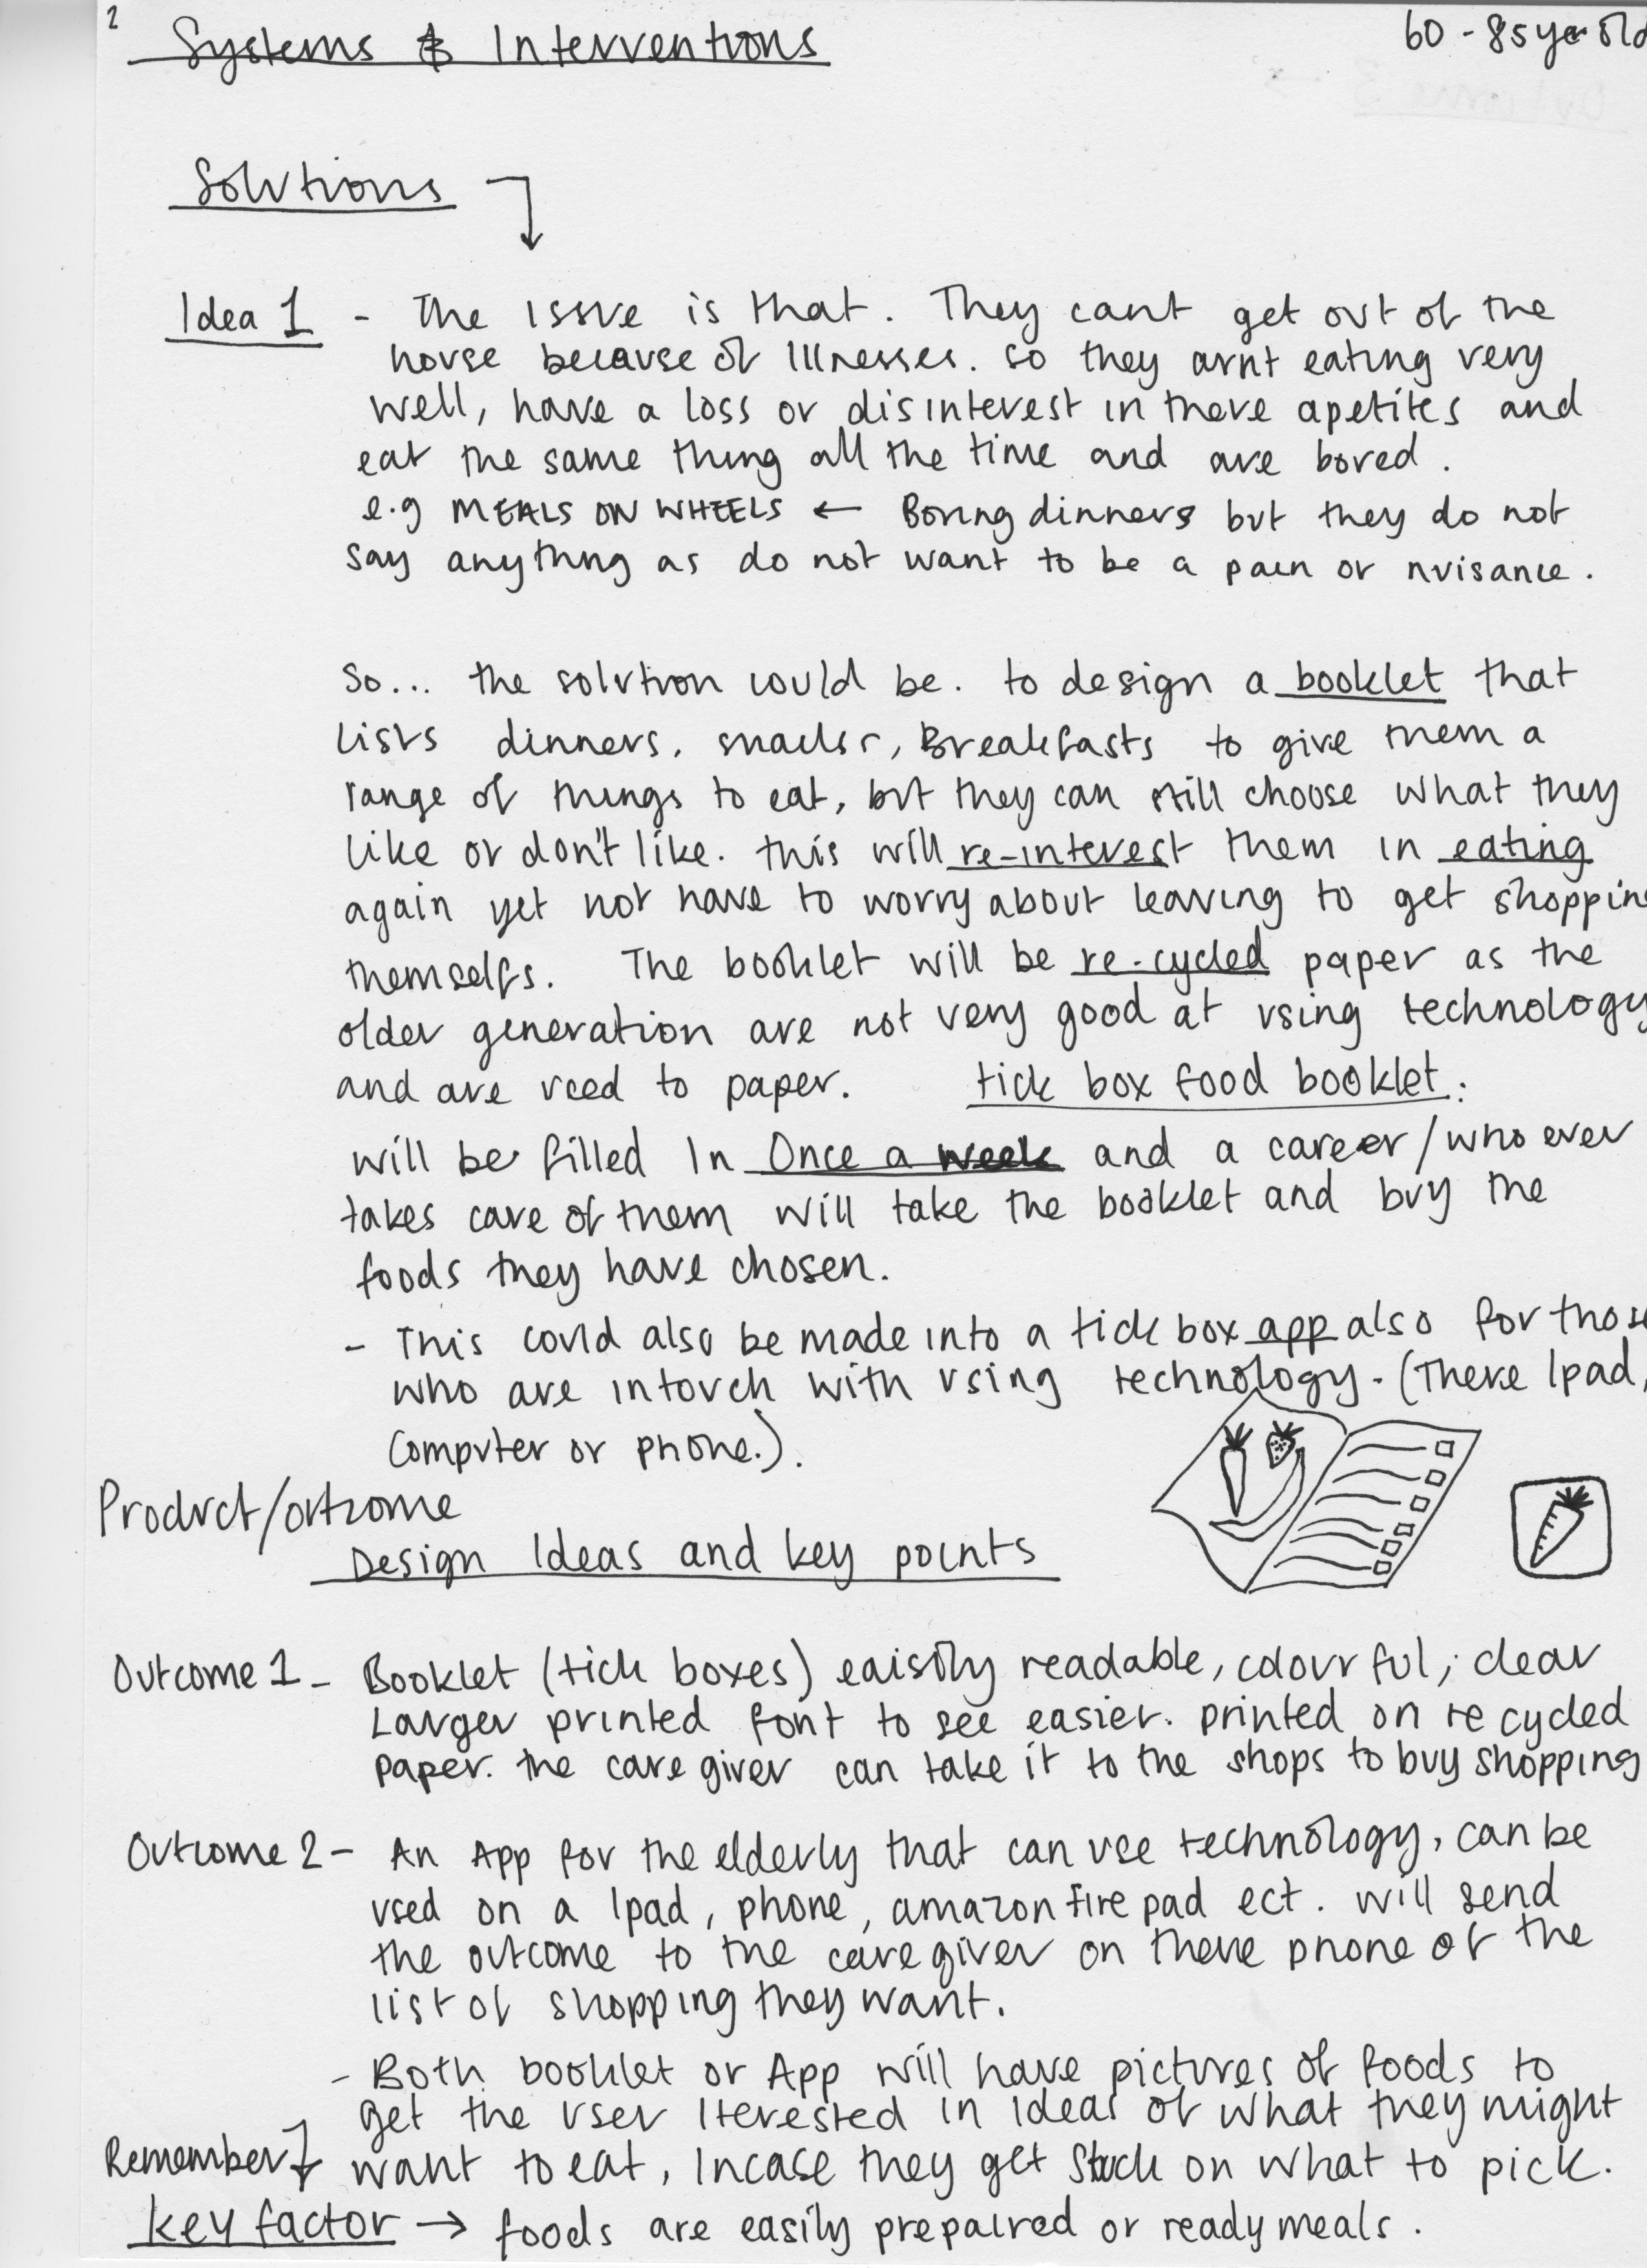 2
Systems & Interventions
60 - 85 ye old
Solutions
Idea 1 - The issue is that. They cant get out of the
house because of Illnesses. so they arnt eating very
well, have a loss or disinterest in there apetites and
eat the same thing all the time and are bored.
e.g MEALS ON WHEELS ← Boring dinners but they do not
say anything as do not want to be a pain or nuisance.
So... the solution could be. to design a booklet that
lists dinners, snacks, Breakfasts to give them a
range of things to eat, but they can still choose what they
like or don't like. this will re-interest them in eating
again yet not have to worry about leaving to get shopping
themselfs. The booklet will be re-cycled paper as the
older generation are not very good at using technology
and are used to paper. tick box food booklet:
will be filled In Once a week and a career/who ever
takes care of them will take the booklet and buy the
foods they have chosen.
- This could also be made into a tick box app also for those
who are intouch with using technology. (There Ipad,
Computer or phone.).
Product/outcome
Design Ideas and key points
Outcome 1 - Booklet (tick boxes) eaisily readable, colourful, clear
Larger printed font to see easier. printed on recycled
paper. the care giver can take it to the shops to buy shopping
Outcome 2 - An App for the elderly that can use technology, can be
used on a Ipad, phone, amazon fire pad ect. will send
the outcome to the care giver on there phone of the
list of shopping they want.
- Both booklet or App will have pictures of foods to
get the user Iterested in ideas of what they might
Remember want to eat, Incase they get Stuck on what to pick.
key factor → foods are easily prepaired or ready meals.